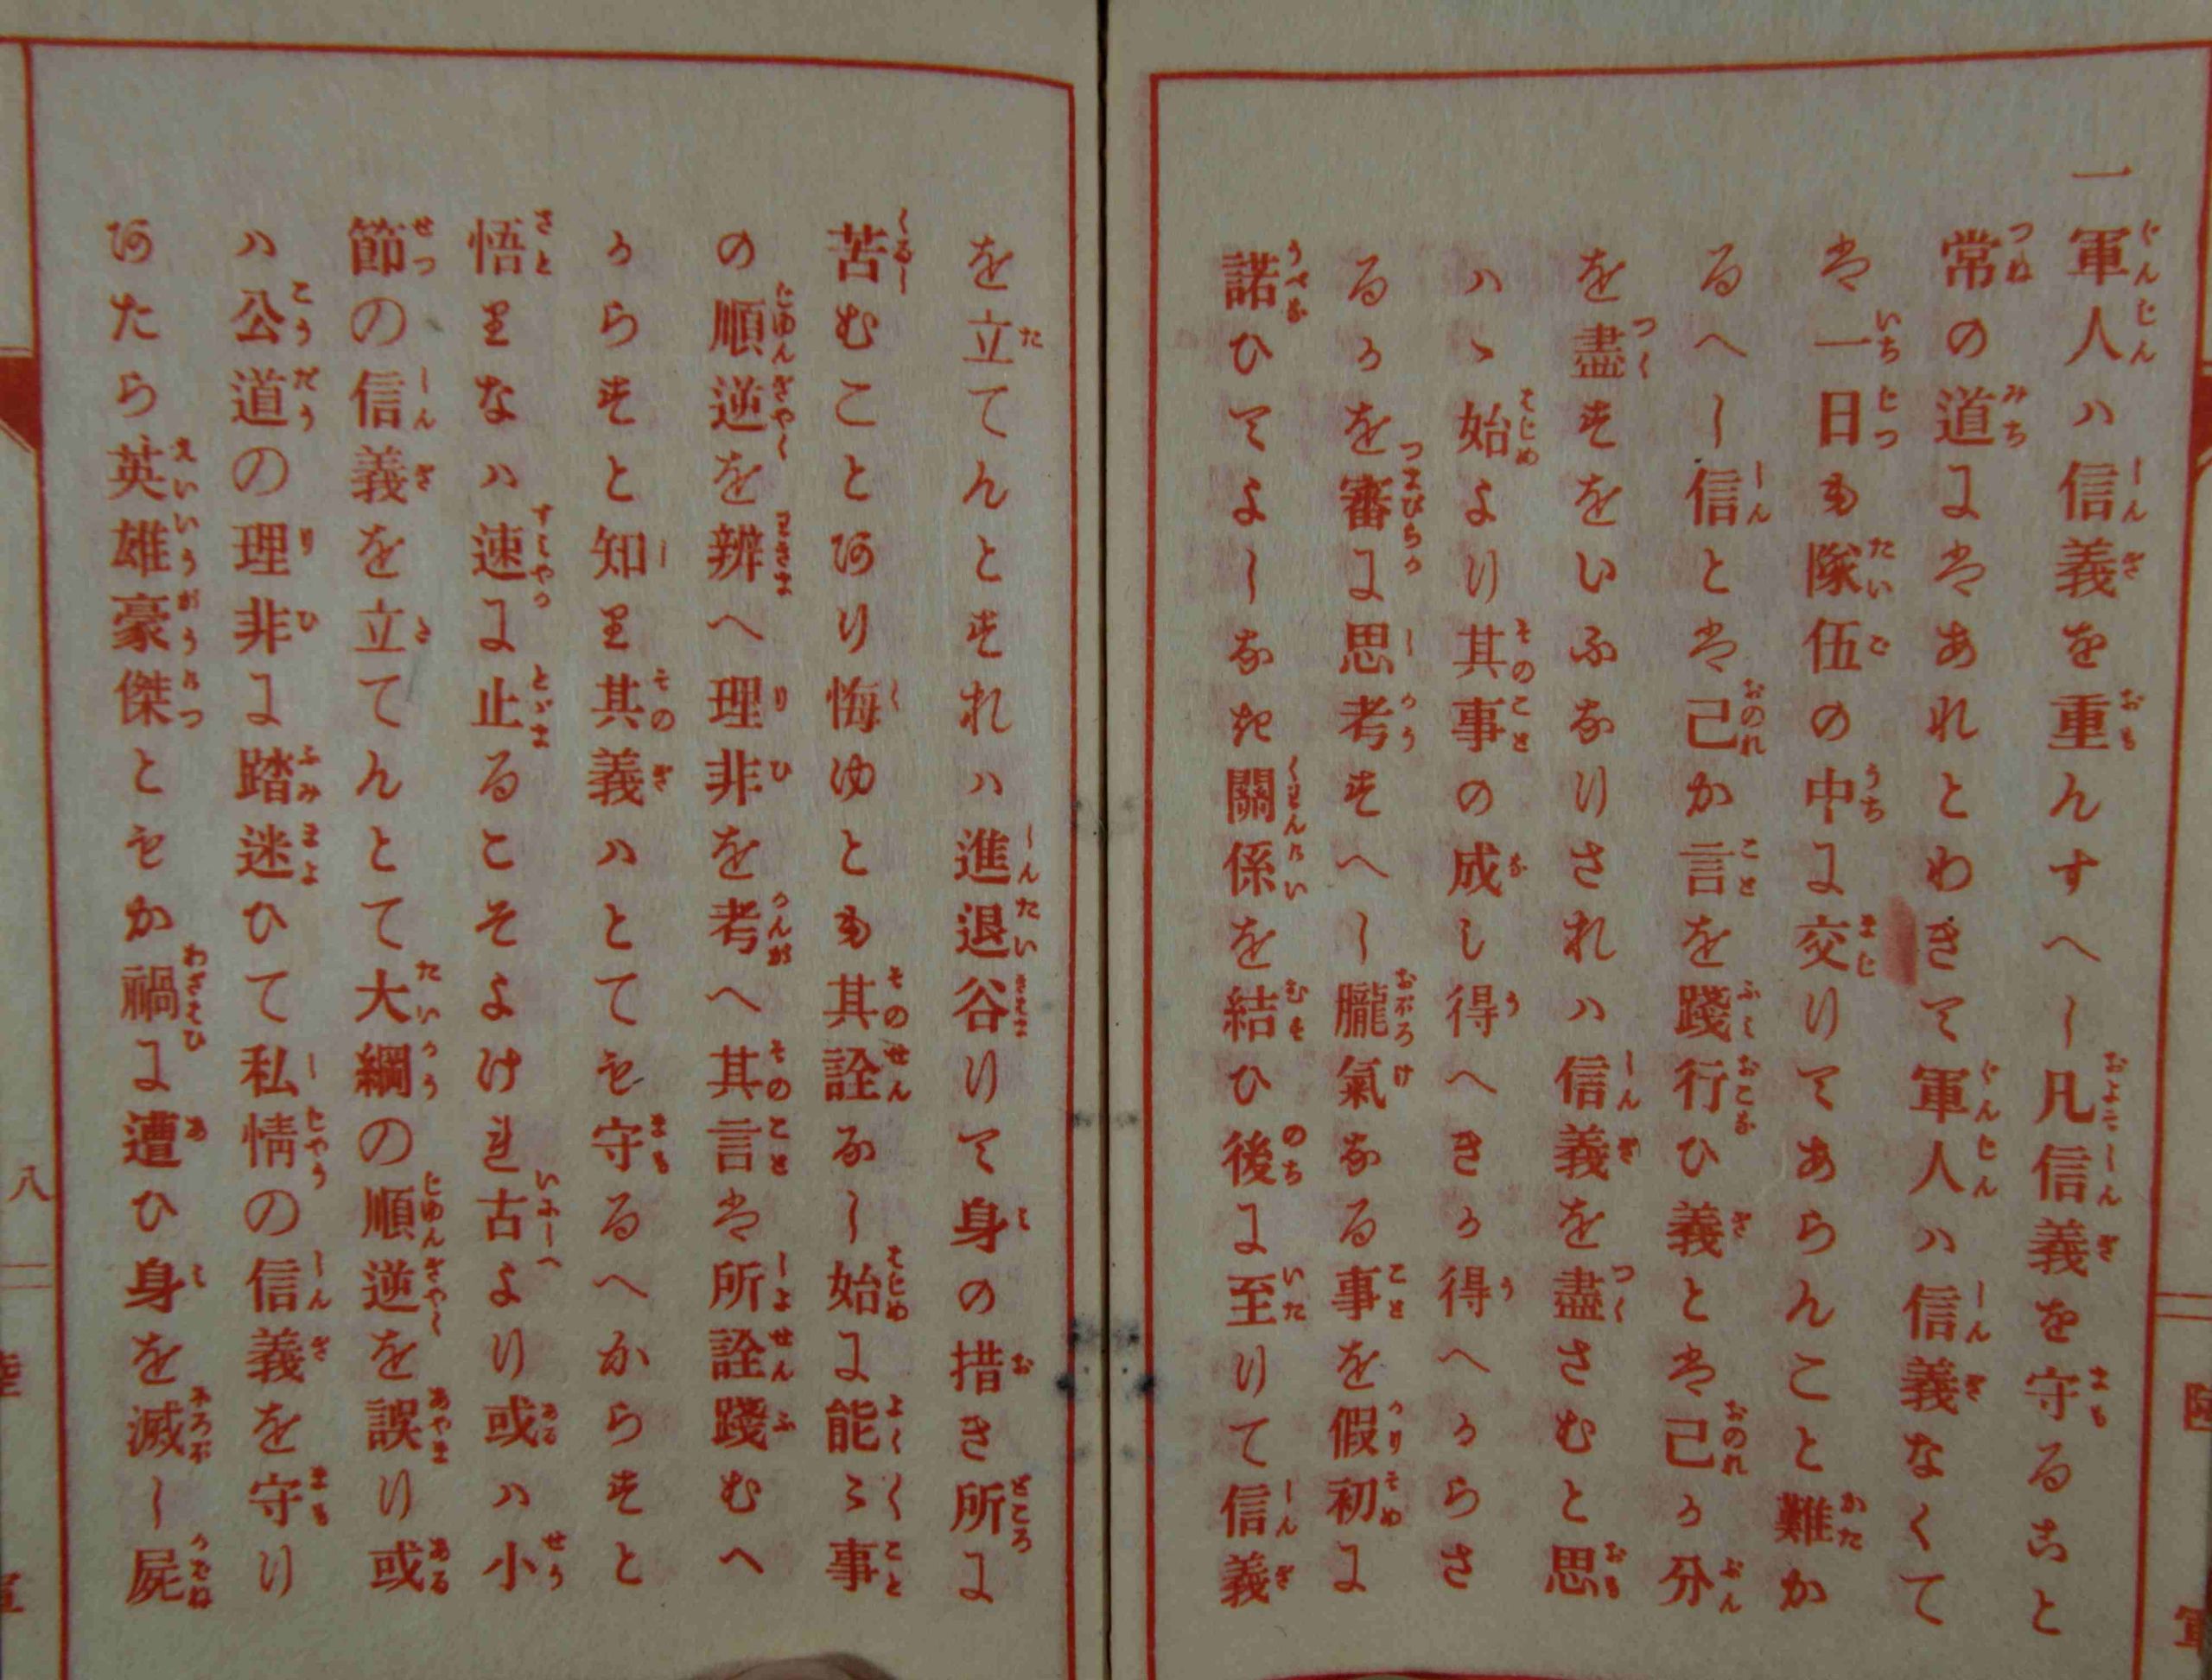 一軍人ハ信義を重んすへし凡信義を守ること
常の道にはあれとわきて軍人ハ信義なくて
は一日も隊伍の中に交りてあらんこと難か
るへし信とは己か言を踐行ひ義とは己か分
を盡すをいふなりされハ信義を盡さむと思
ハゝ始より其事の成し得へきか得へからさ
るかを審に思考すへし朧氣なる事を假初に
諾ひてよしなき關係を結ひ後に至りて信義
を立てんとすれハ進退谷りて身の措き所に
苦むことあり悔ゆとも其詮なし始に能々事
の順逆を辨へ理非を考へ其言は所詮踐むへ
からすと知り其義ハとても守るへからすと
悟りなハ速に止るこそよけれ古より或ハ小
節の信義を立てんとて大綱の順逆を誤り或
ハ公道の理非に踏迷ひて私情の信義を守り
あたら英雄豪傑ともか禍に遭ひ身を滅し屍
八